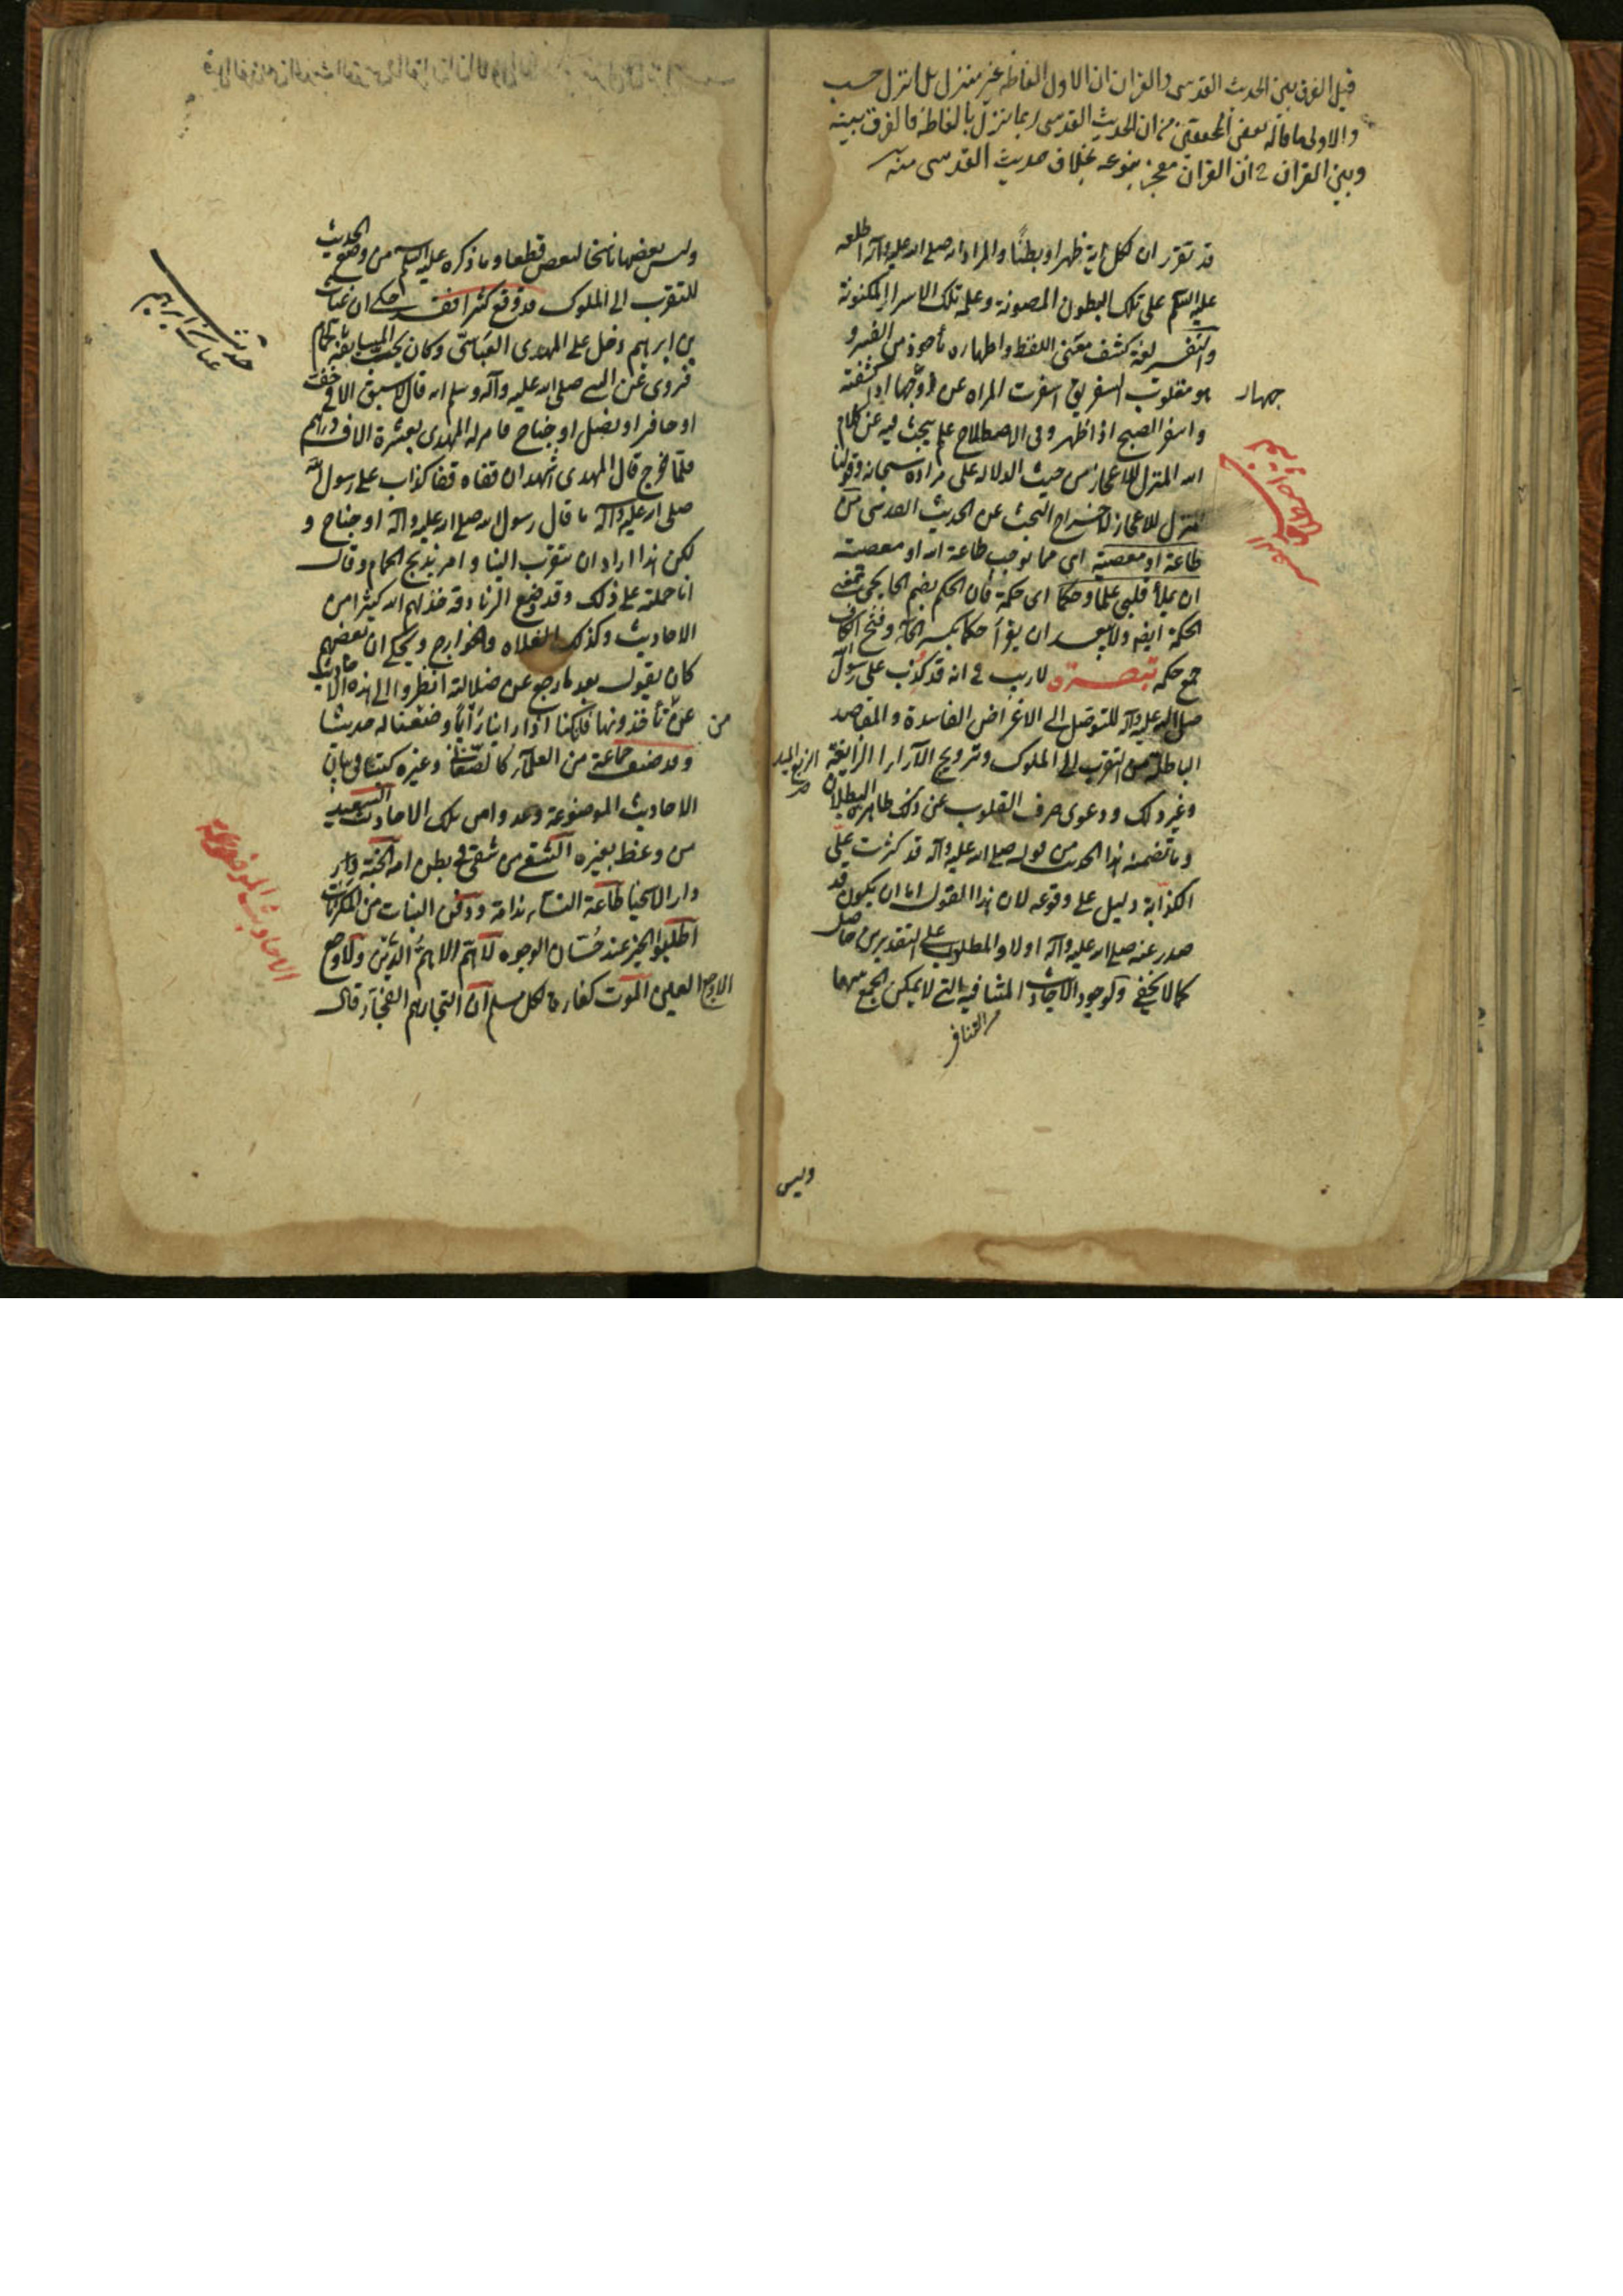 قيل الفرق بين الحديث القدسي والقران ان الاول الفاظه غير منزل بل انزل حسب
والاولى ما قاله بعض المحققين من ان الحديث القدسي ربما ينزل بالفاظه فالفرق بينه
وبين القران ان القران معجز بنوعه بخلاف حديث القدسي منه
قد تقرر ان لكل اية ظهرا وبطنا والمراد انه صلى الله عليه وآله اطلعه
عليه السلم على تلك البطون المصونة وعلمه تلك الاسرار المكنونة
والتفسير لغة كشف معنى اللفظ واظهاره مأخوذ من الفسر و
هو مقلوب السفر يق اسفرت المراه عن وجهها اذا كشفته
جهار
واسفر الصبح اذا ظهر وفى الاصطلاح علم يبحث فيه عن كلام
الله المنزل للاعجاز من حيث الدلاله على مراده سبحانه وقولنا
المنزل للاعجاز لاخراج البحث عن الحديث القدسى من
طاعة او معصية اى مما يوجب طاعة الله او معصيته
ان يملأ قلبى علما وحكما اى حكمة فان الحكم بضم الحا يجى بمعنى
الحكمة ايضه ولا يبعد ان يقرأ حكما بكسر الحاء وفتح الكاف
جمع حكمه تبصرة لا ريب فى انه قد كذب على رسول الله
صلى الله عليه وآله للتوصل الى الاغراض الفاسدة والمقاصد
الباطلة من التقرب الى الملوك وترويج الآراء الزايغة
وغير ذلك ودعوى صرف القلوب عن ذلك ظاهرة البطلان
وما تضمنه هذا الحديث من قوله صلى الله عليه وآله قد كثرت علىّ
الكذابة دليل على وقوعه لان هذا القول اما ان يكون قد
صدر عنه صلى الله عليه وآله اولا والمطلوب على التقديرين حاصل
كما لا يخفى وكوجود الاحاديث المتنافيه التى لا يمكن الجمع بينها
التنافر
وليس
وليس بعضها ناسخا لبعض قطعا وما ذكره عليه السلم من وضع الحديث
للتقرب الى الملوك قد وقع كثيرا فقد حكى ان غياث
بن ابرهيم دخل على المهدى العباسىّ وكان يحب المسابقة بالحمام
فروى عن النبى صلى الله عليه وآله وسلم انه قال لا سبق الا فى خف
او حافر او نصل او جناح فامر له المهدى بعشرة الاف درهم
فلمّا خرج قال المهدى اشهد ان قفاه قفا كذاب على رسول الله
صلى الله عليه وآله ما قال رسول الله صلى الله عليه وآله او جناح و
لكن هذا اراد ان يتقرب الينا وامر بذبح الحمام وقال
انا حملته على ذلك وقد وضع الزنادقة خذلهم الله كثيرا من
الاحاديث وكذلك الغلاه والخوارج ويحكى ان بعضهم
كان يقول بعد ما رجع عن ضلالته انظروا الى هذه الاحاديث
عمن تأخذونها فانا كنا اذا راينا رأيا وضعنا له حديثا
وقد صنف جماعة من العلماء كالصغانى وغيره كتبا فى بيان
الاحاديث الموضوعة وعدوا من تلك الاحاديث السعيد
من وعظ بغيره الشقى من شقى فى بطن امه الجنة دار
دار الاسخيا طاعة النساء ندامة ودفن البنات من المكرمات
اطلبوا الخير عند حسان الوجوه لا همّ الا همّ الدّين ولا وجع
الا وجع العين الموت كفارة لكل مسلم ان التجار هم الفجار قال
حديث غياث بن ابرهيم
الاحاديث الموضوعة